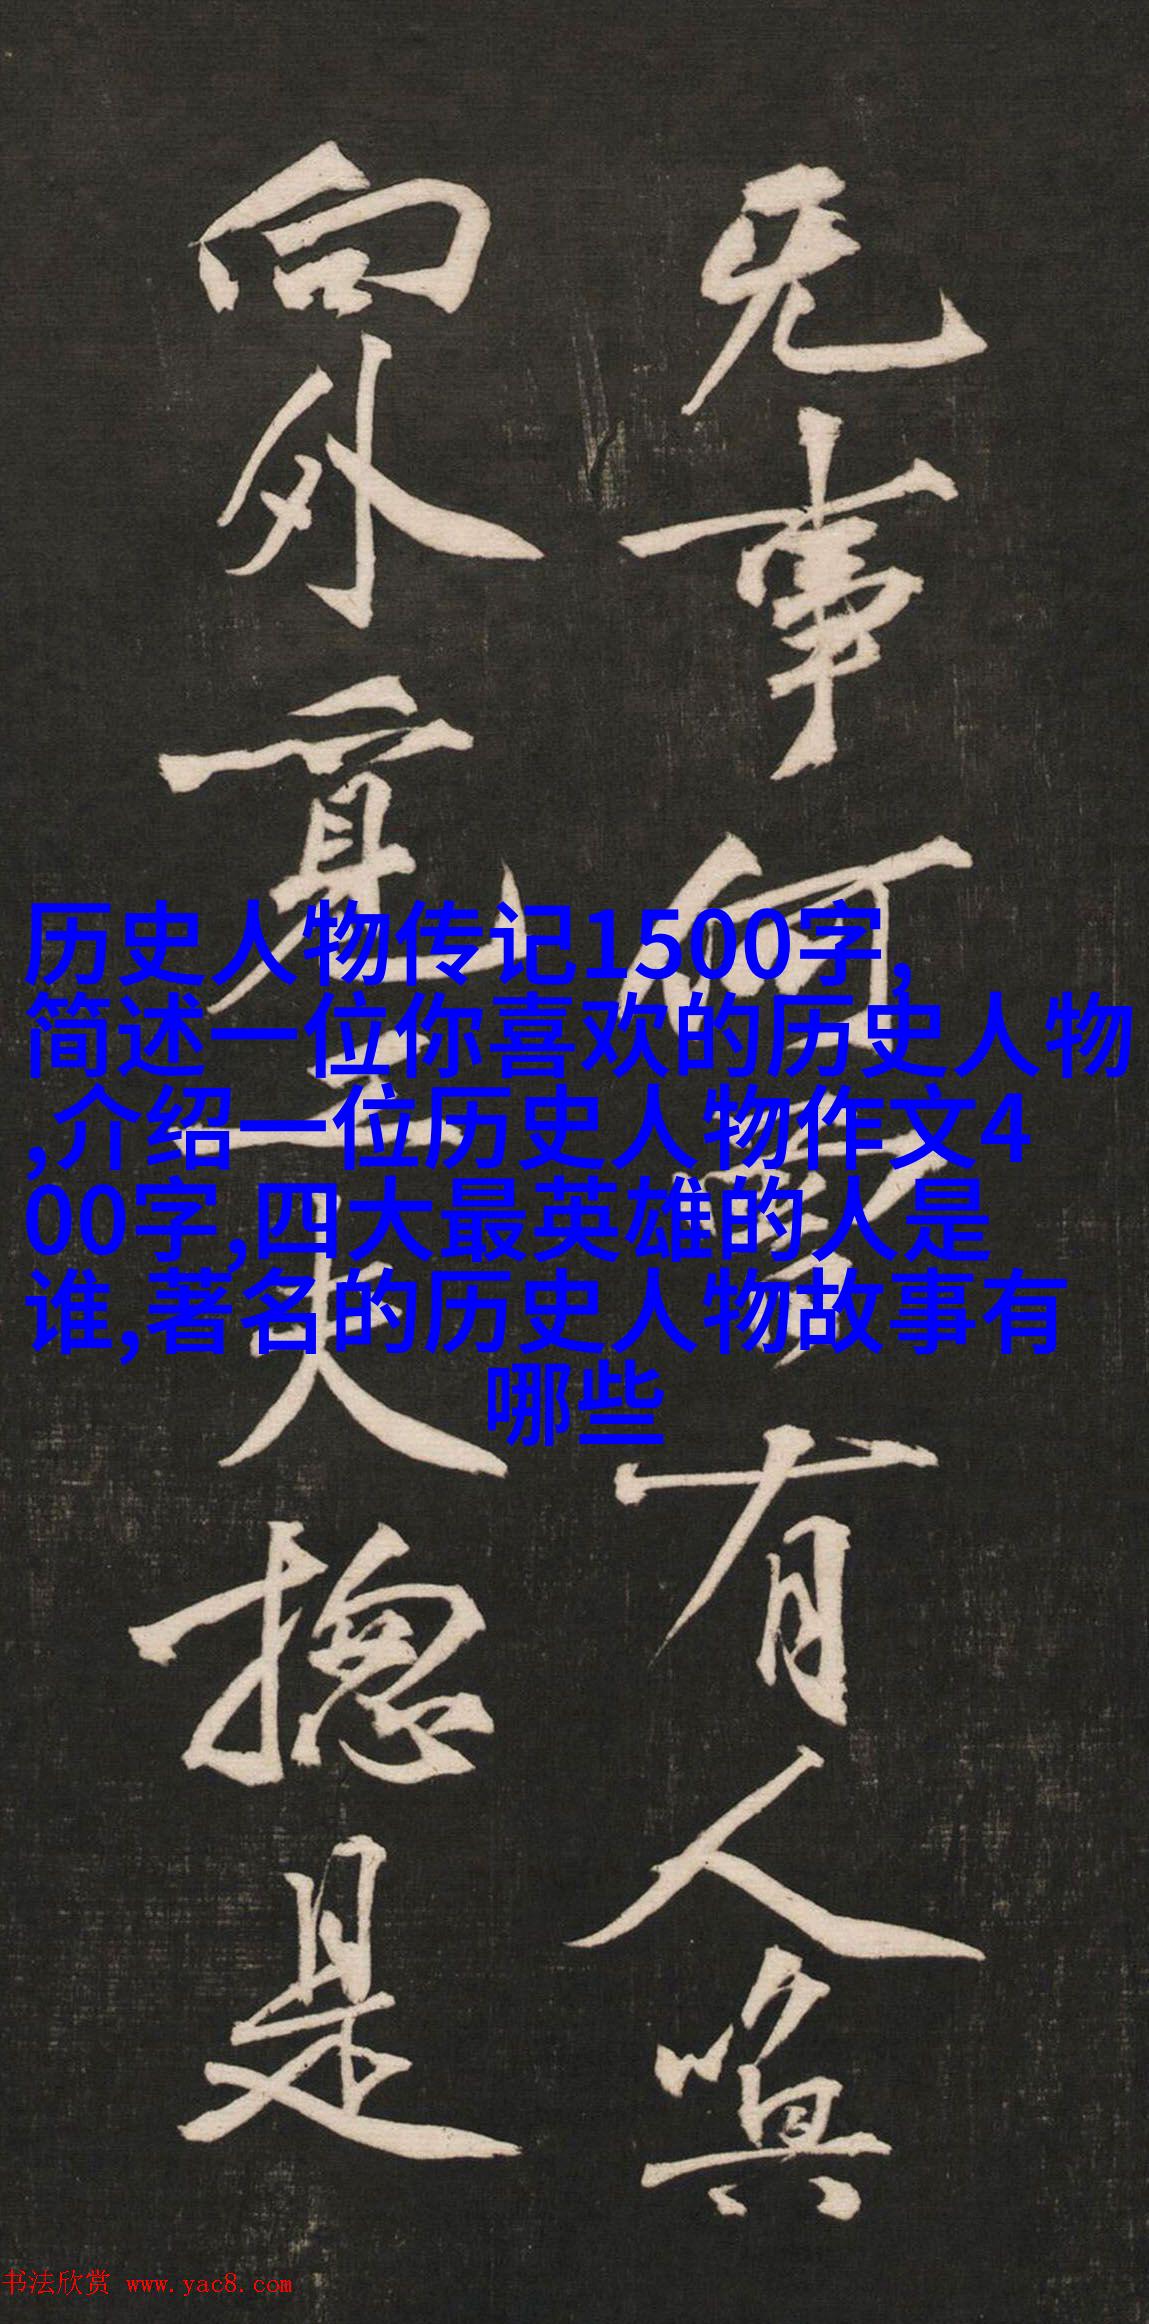 无事何有人
向外覓工夫揔是
历史人物传记1500字,
简述一位你喜欢的历史人物
,介绍一位历史人物作文4
00字,四大最英雄的人是
谁,著名的历史人物故事有
哪些
书法欣赏 www.yac8.com